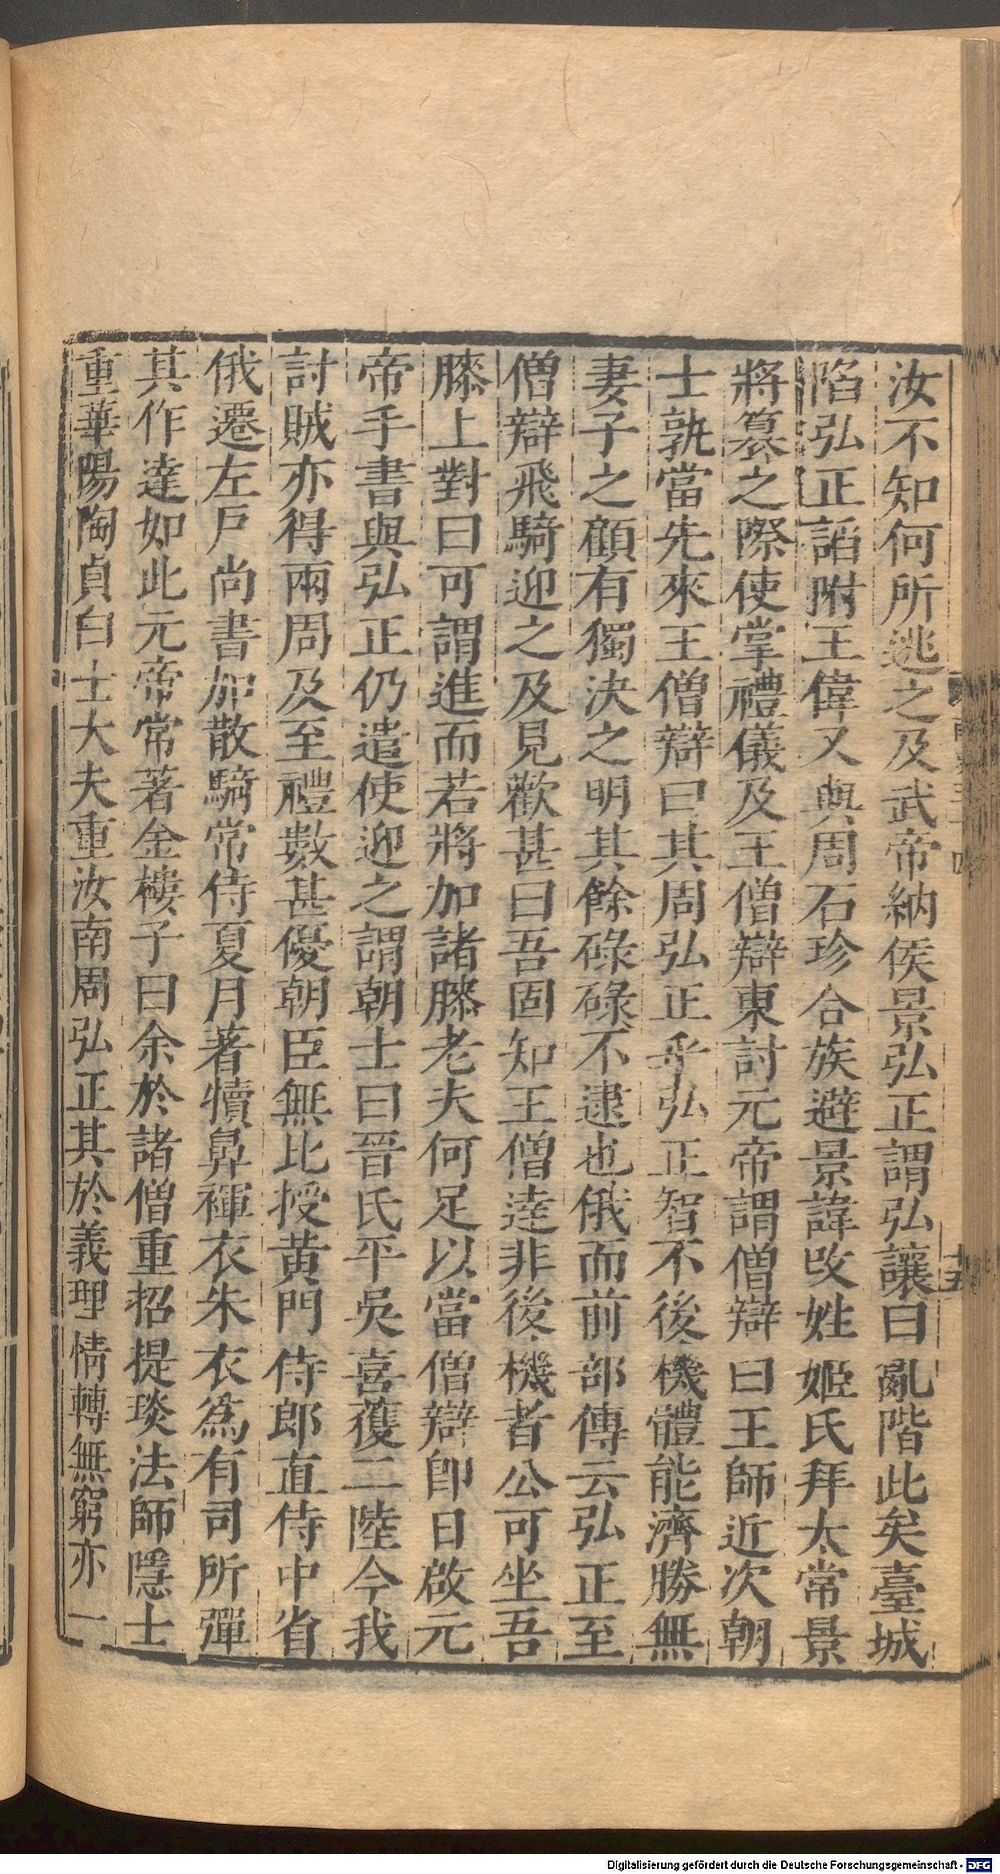 汝不知何所逃之及武帝納侯景弘正謂弘讓曰亂階此矣臺城
陷弘正諂附王偉又與周石珍合族避景諱改姓姬氏拜太常景
將簒之際使掌禮儀及王僧辯東討元帝謂僧辯曰王師近次朝
士孰當先來王僧辯曰其周弘正乎弘正智不後機體能濟勝無
妻子之顧有獨決之明其餘碌碌不逮也俄而前部傳云弘正至
僧辯飛騎迎之及見歡甚曰吾固知王僧達非後機者公可坐吾
膝上對曰可謂進而若將加諸膝老夫何足以當僧辯即日啟元
帝手書與弘正仍遣使迎之謂朝士曰晉氏平吳喜獲二陸今我
討賊亦得兩周及至禮數甚優朝臣無比授黃門侍郎直侍中省
俄遷左戶尚書加散騎常侍夏月著犢鼻褌衣朱衣爲有司所彈
其作達如此元帝常著金樓子曰余於諸僧重招提琰法師隱士
重華陽陶貞白士大夫重汝南周弘正其於義理情轉無窮亦一
十五
Digitalisierung gefördert durch die Deutsche Forschungsgemeinschaft - DFG